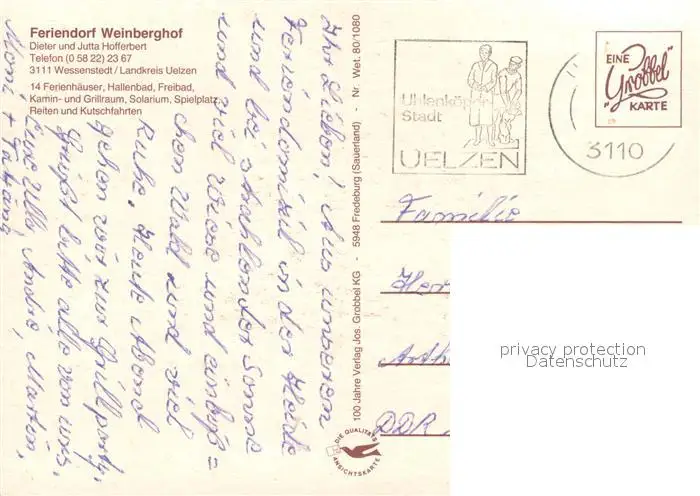 Feriendorf Weinberghof
Dieter und Jutta Hofferbert
Telefon (0 58 22) 23 67
3111 Wessenstedt / Landkreis Uelzen
14 Ferienhäuser, Hallenbad, Freibad,
Kamin- und Grillraum, Solarium, Spielplatz,
Reiten und Kutschfahrten
Ihr Lieben! Aus unserem
Feriendomizil in der Heide
und bei strahlender Sonne
und viel Wiese und
chen Wald und viel
Ruhe. Heute Abend
gehen wir zur Grillparty.
Grüßt bitte alle von uns.
Eure Ulla, André, Martin,
Moni +
100 Jahre Verlag Jos. Grobbel KG - 5948 Fredeburg (Sauerland) - Nr. Wet. 80/1080
DIE QUALITÄTS
ANSICHTSKARTE
Uhlenköper
Stadt
UELZEN
3110
EINE
"Grobbel"
KARTE
Familie
Her
Arth
DDR
privacy protection
Datenschutz